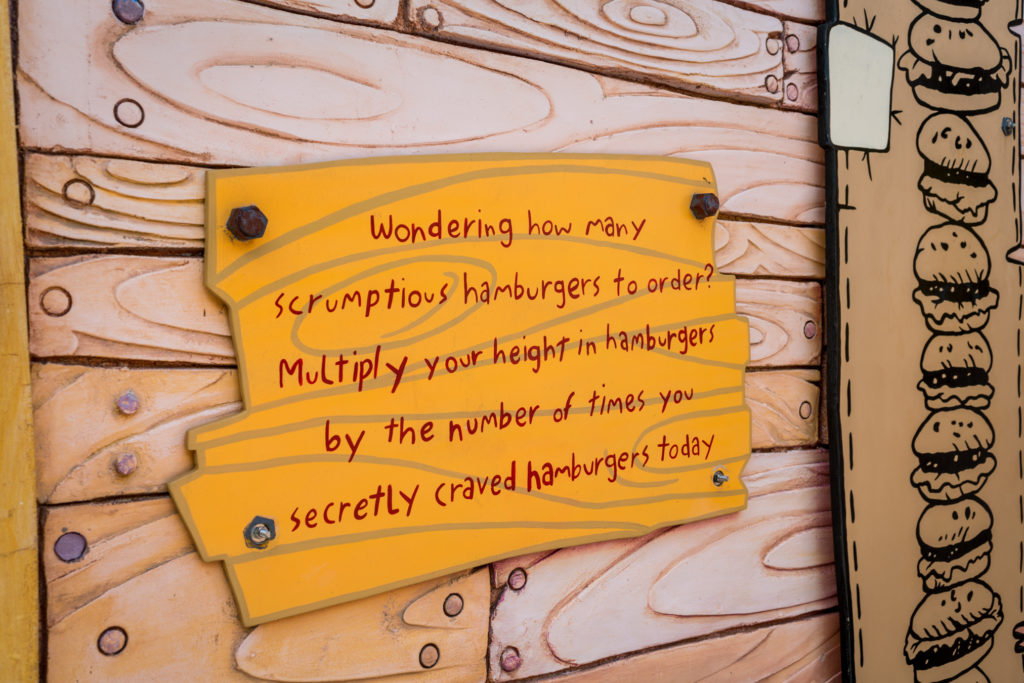 Wondering how many
scrumptious hamburgers to order?
Multiply your height in hamburgers
by the number of times you
secretly craved hamburgers today